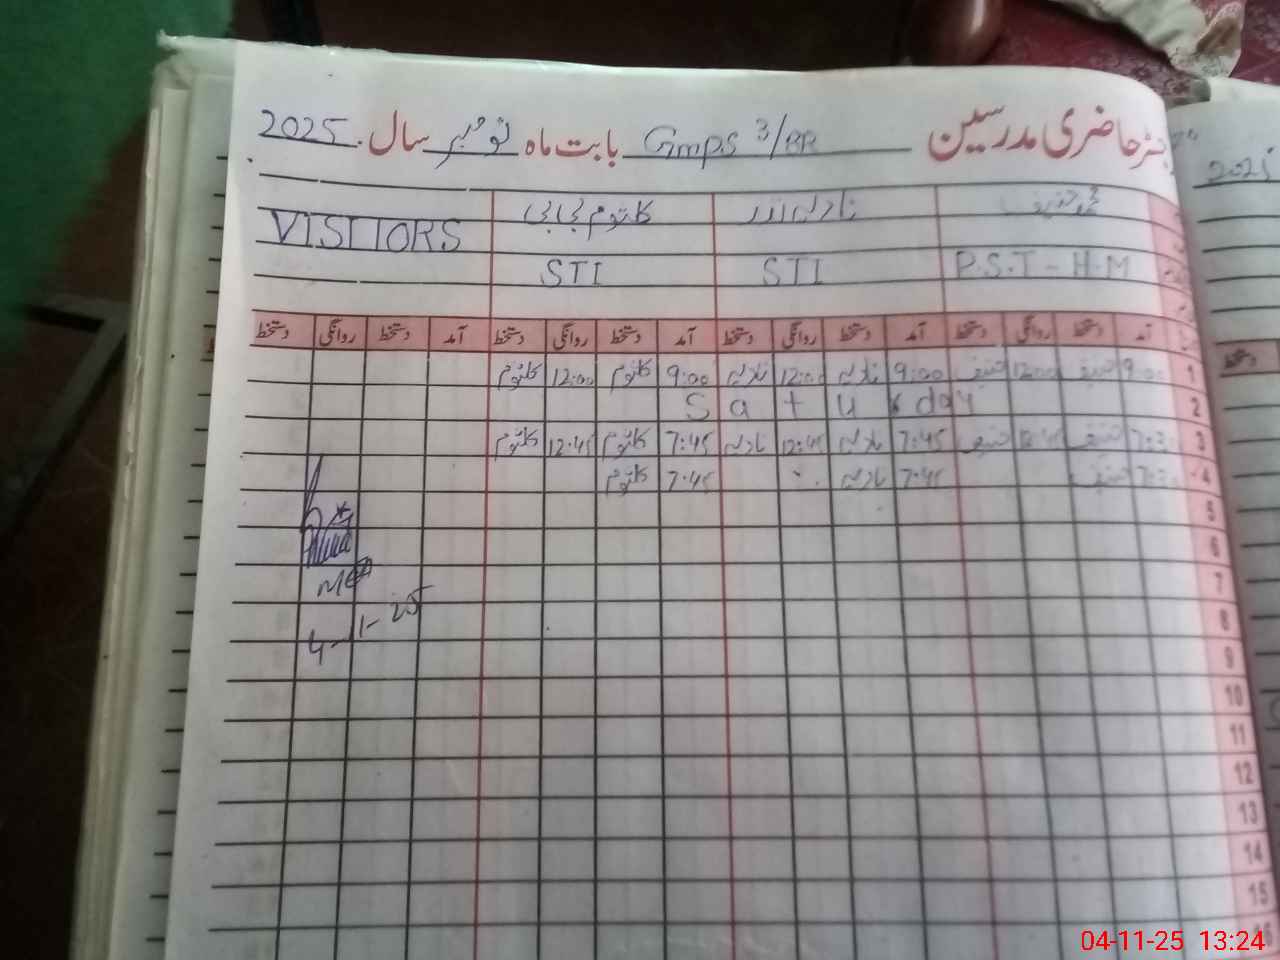 رجسٹر حاضری مدرسین Gmps 3/BR بابت ماہ نومبر سال 2025
2025
محمد حنیف نادیہ نذر کلثوم بی بی
VISITORS
P.S.T - H.M STI STI
آمد دستخط روانگی دستخط آمد دستخط روانگی دستخط آمد دستخط روانگی دستخط آمد دستخط روانگی دستخط
دستخط
1 9:00 حنیف 12:00 حنیف 9:00 نادیہ 12:00 نادیہ 9:00 کلثوم 12:00 کلثوم
2 Saturday
3 7:30 حنیف 12:45 حنیف 7:45 نادیہ 12:45 نادیہ 7:45 کلثوم 12:45 کلثوم
4 7:30 حنیف 7:45 نادیہ 7:45 کلثوم
5
6
7
8
9
10
11
12
13
14
15
16
MEA
4-11-25
04-11-25 13:24